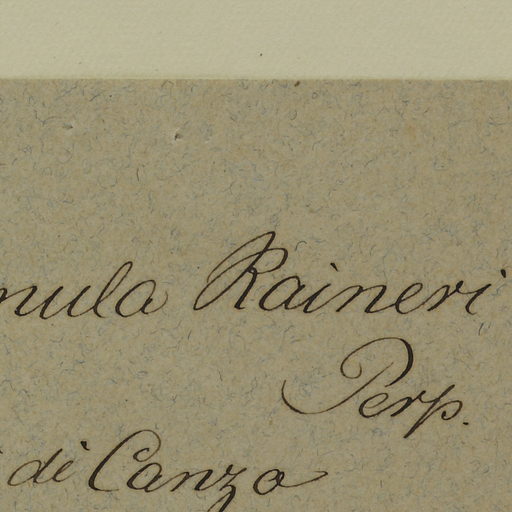 nula Raineri
Perp.
di Canzo